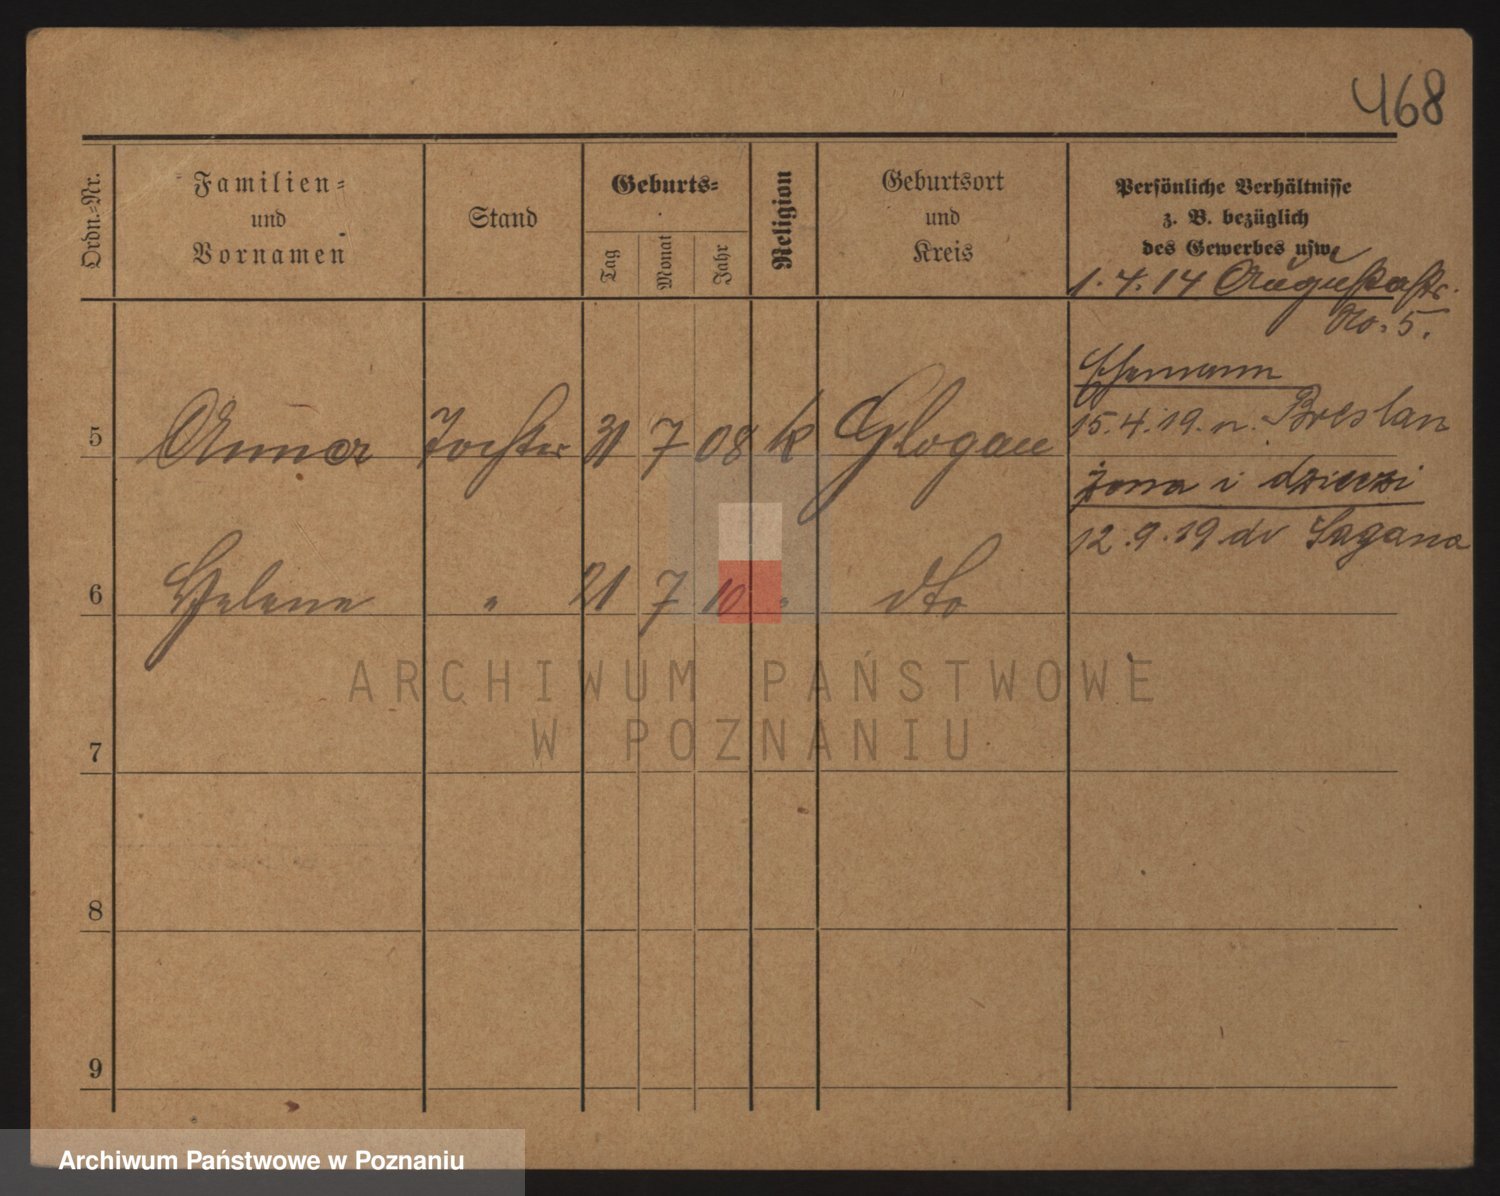 468
Ordn.-Nr.
Familien-
und
Vornamen
Stand
Geburts-
Tag
Monat
Jahr
Religion
Geburtsort
und
Kreis
Persönliche Verhältnisse
z. B. bezüglich
des Gewerbes usw.
1.4.14 Augustastr.
No. 5.
Ehemann
15.4.19. n. Breslau
5 Anna Tochter 31 7 08 k Glogau
żona i dzieci
12.9.19 do Sagana
6 Helene " 21 7 10 " dto
ARCHIWUM PAŃSTWOWE
W POZNANIU
7
8
9
Archiwum Państwowe w Poznaniu